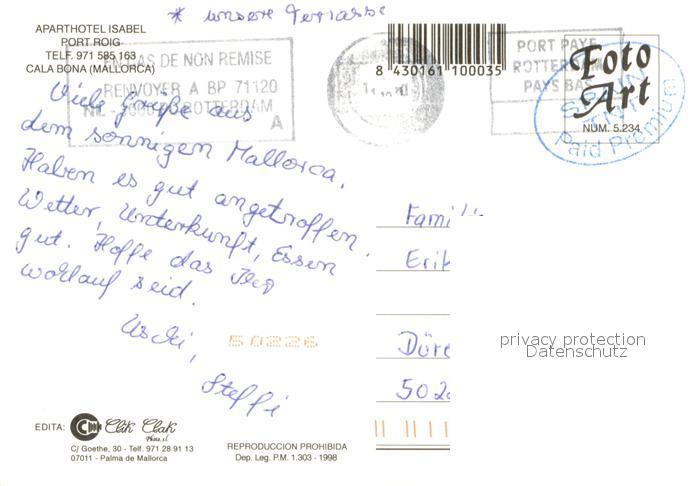 * unsere Terrasse
APARTHOTEL ISABEL
PORT ROIG
TELF. 971 585 163
CALA BONA (MALLORCA)
EN CAS DE NON REMISE
RENVOYER A BP 71120
ROTTERDAM
A
8 430161 100035
PORT PAYE
ROTTERDAM
PAYS BAS
Foto
Art
NUM. 5.234
Paid Premium
Viele Grüße aus
dem sonnigen Mallorca.
Haben es gut angetroffen.
Wetter, Unterkunft, Essen
gut. Hoffe das Ihr
wohlauf seid.
Uschi,
Steffi
50226
Famili
Erik
Düre
502
privacy protection
Datenschutz
EDITA: Clik Clak
C/ Goethe, 30 - Telf. 971 28 91 13
07011 - Palma de Mallorca
REPRODUCCION PROHIBIDA
Dep. Leg. P.M. 1.303 - 1998